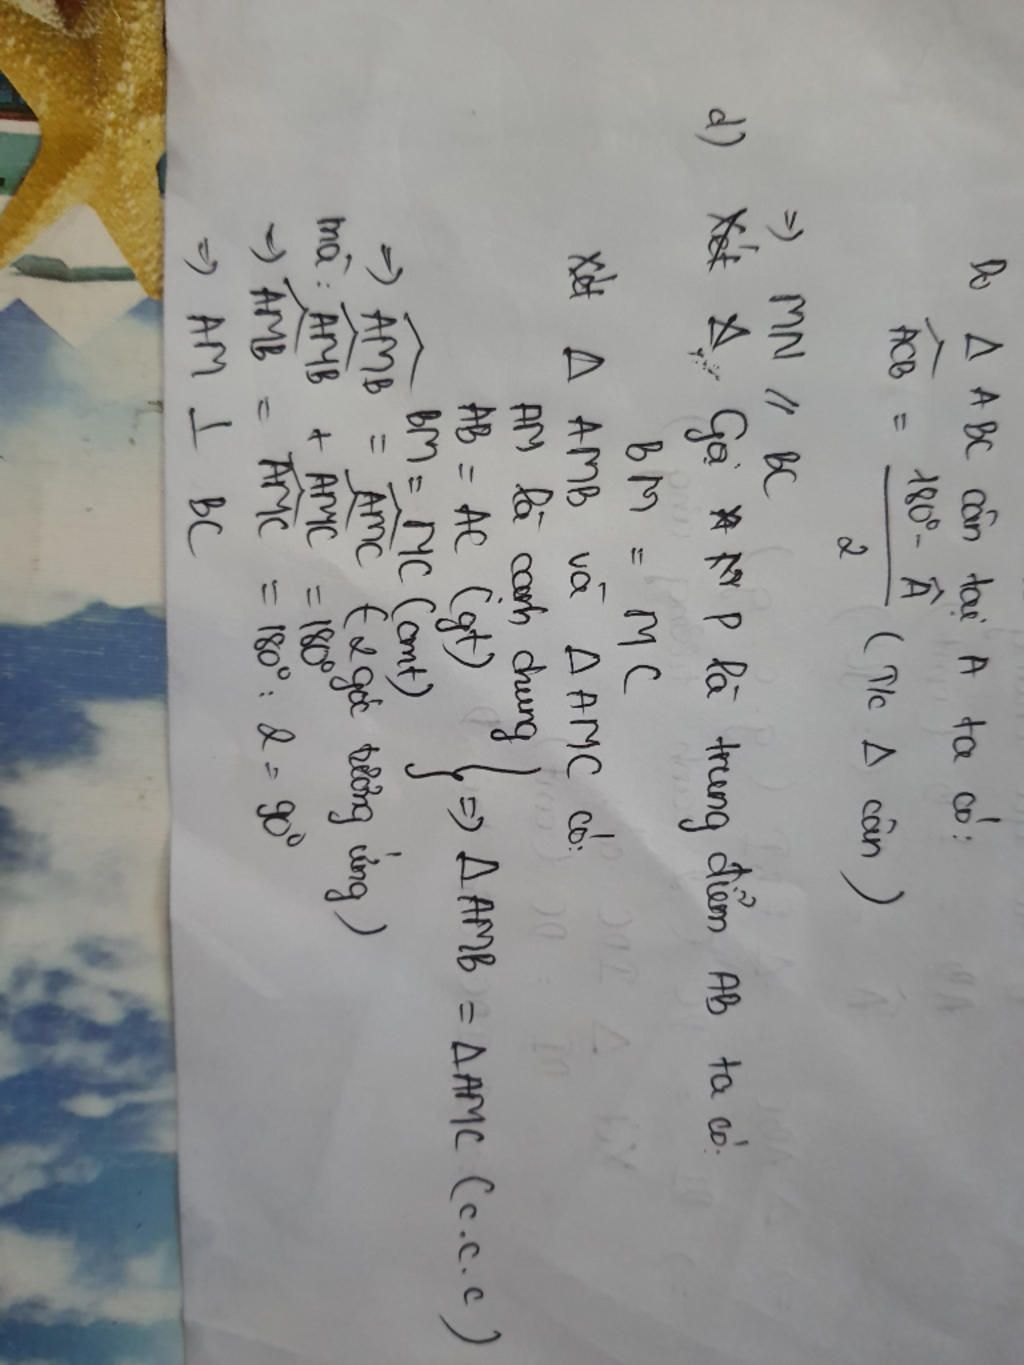 Do Δ ABC cân tại A ta có:
ACB = 180° - Â / 2 (T/c Δ cân)
=> MN // BC
d) Xét Δ Gọi M P là trung điểm AB ta có:
BM = MC
Xét Δ AMB và Δ AMC có:
AM là cạnh chung
AB = AC (gt)
BM = MC (cmt)
} => Δ AMB = Δ AMC (c.c.c)
=> AMB = AMC (2 góc tương ứng)
mà: AMB + AMC = 180°
=> AMB = AMC = 180° : 2 = 90°
=> AM ⊥ BC